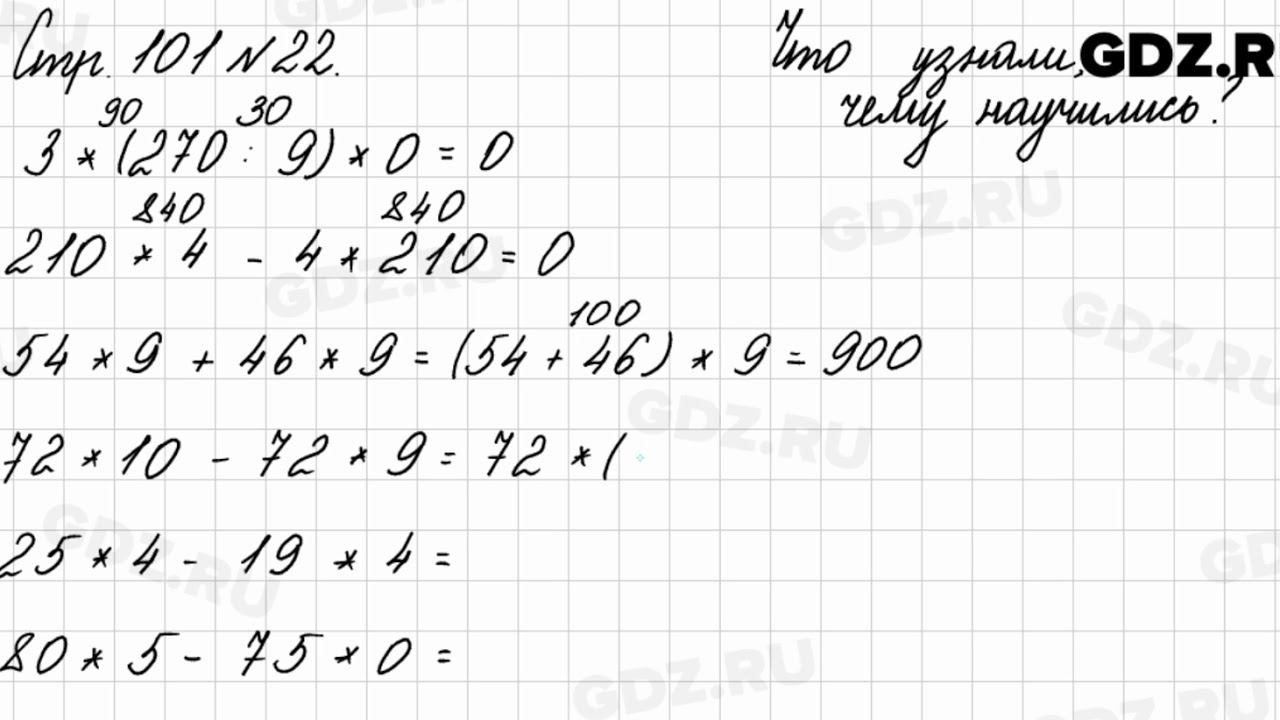 Стр. 101 N 22.
Что узнали, GDZ.R
чему научились?
90 30
3 * (270 : 9) * 0 = 0
840 840
210 * 4 - 4 * 210 = 0
100
54 * 9 + 46 * 9 = (54 + 46) * 9 = 900
72 * 10 - 72 * 9 = 72 * (
25 * 4 - 19 * 4 =
80 * 5 - 75 * 0 =
GDZ.RU
GDZ.RU
GDZ.RU
GDZ.RU
GDZ.RU
GDZ.RU